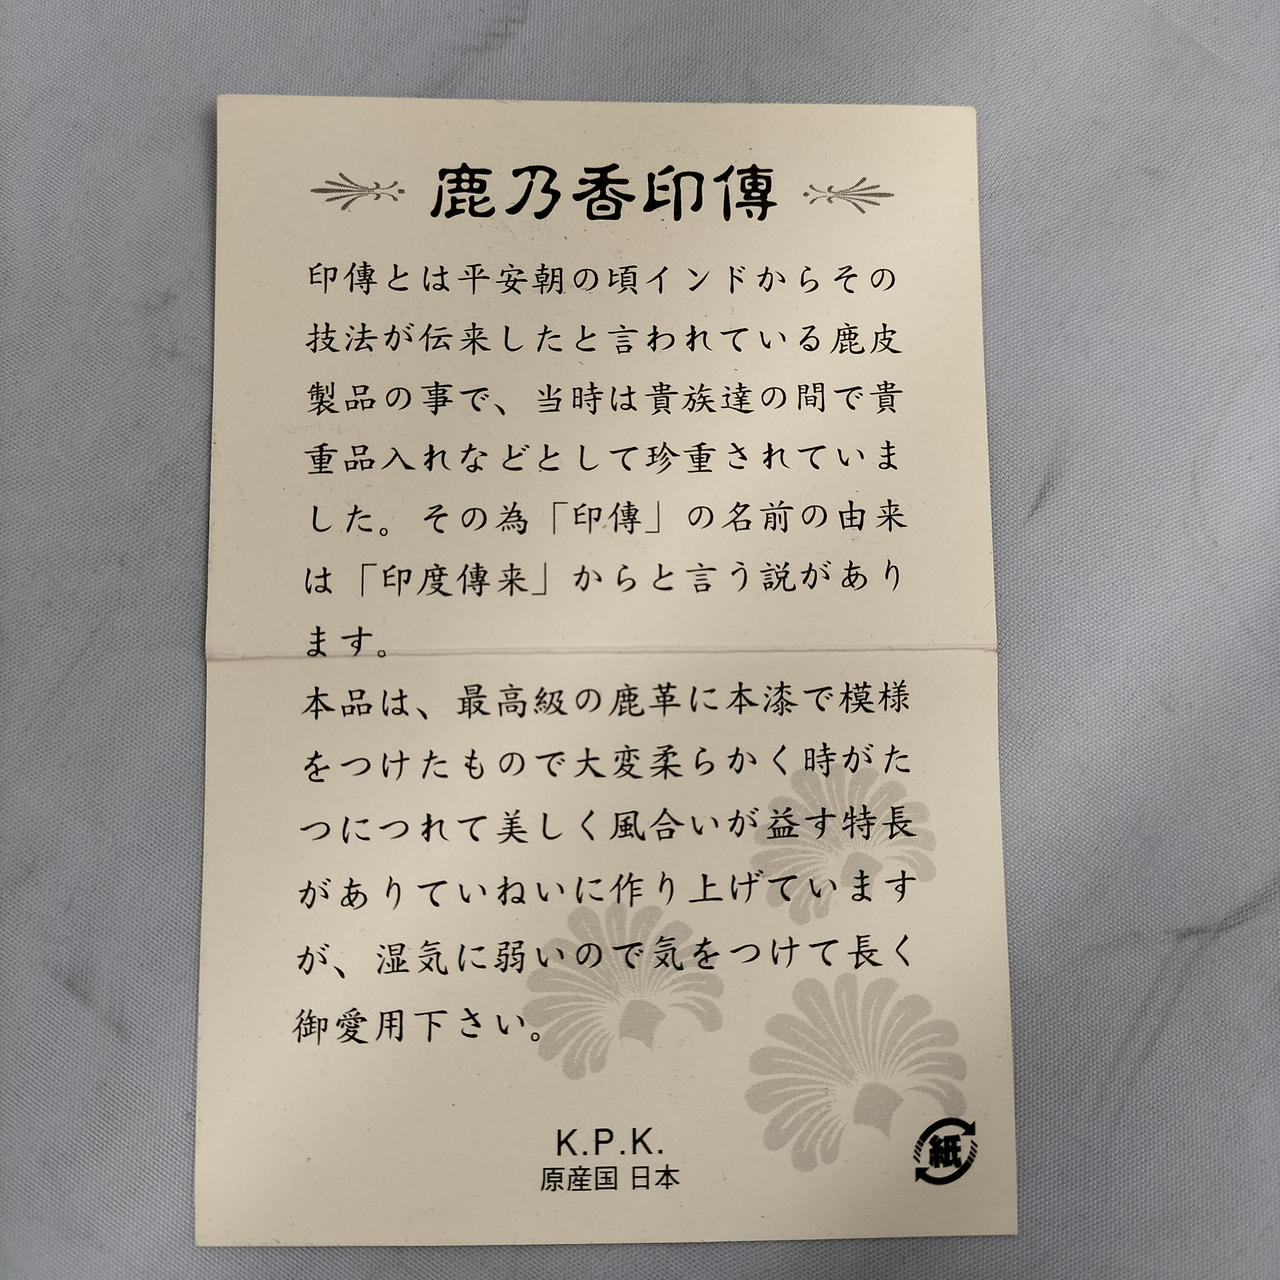 鹿乃香印傳
印傳とは平安朝の頃インドからその
技法が伝来したと言われている鹿皮
製品の事で、当時は貴族達の間で貴
重品入れなどとして珍重されていま
した。その為「印傳」の名前の由来
は「印度傳来」からと言う説があり
ます。
本品は、最高級の鹿革に本漆で模様
をつけたもので大変柔らかく時がた
つにつれて美しく風合いが益す特長
がありていねいに作り上げています
が、湿気に弱いので気をつけて長く
御愛用下さい。
K.P.K.
原産国 日本
紙